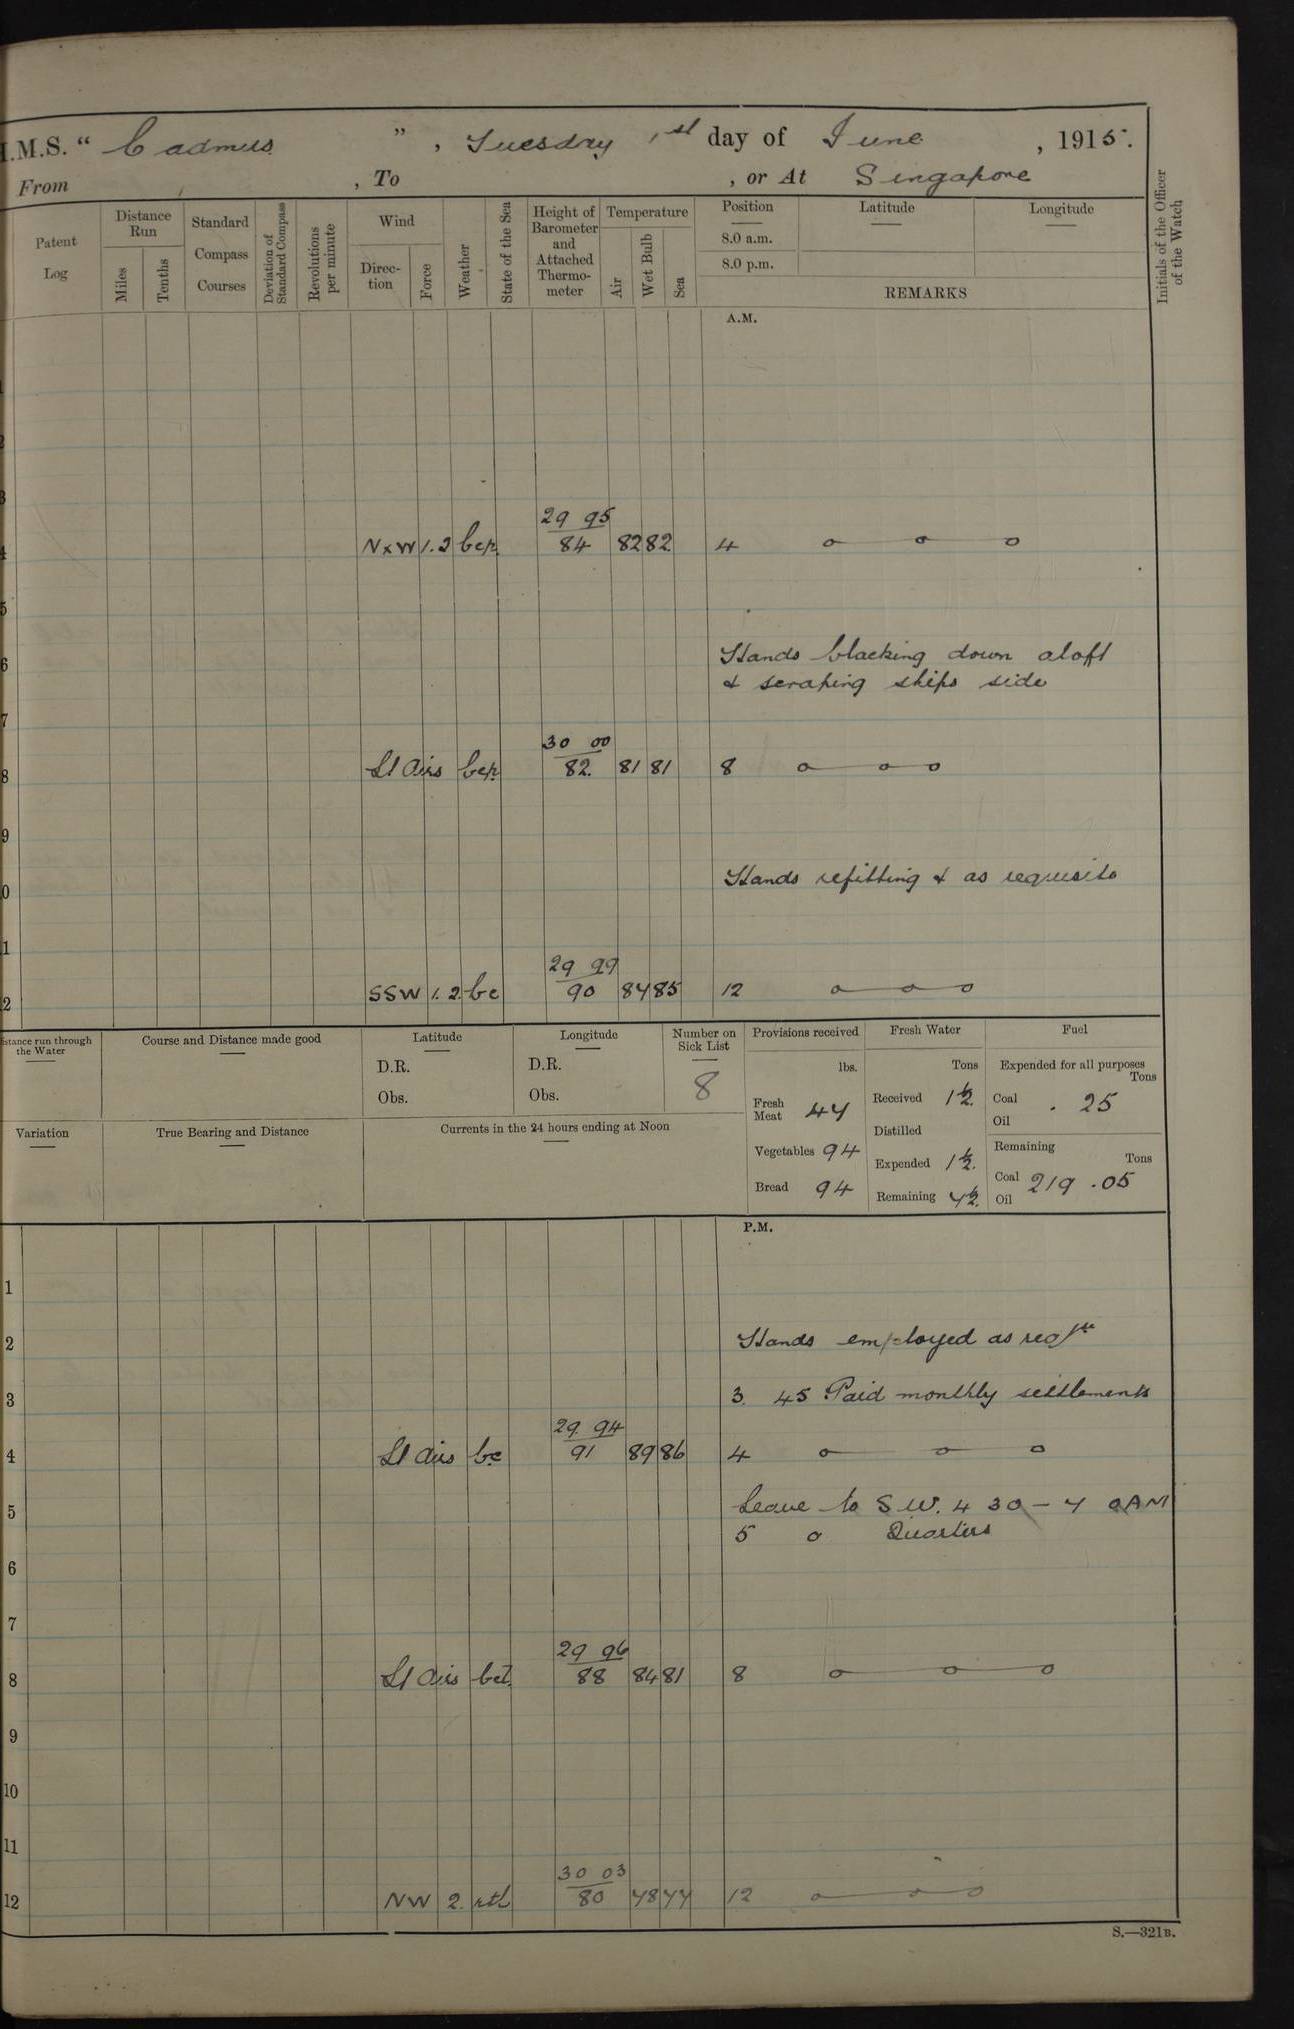 H.M.S. “ Cadmus ”, Tuesday 1st day of June, 1915.
From , To , or At Singapore
Patent Log
Distance Run
Miles
Tenths
Standard Compass Courses
Deviation of Standard Compass
Revolutions per minute
Wind
Direction
Force
Weather
State of the Sea
Height of Barometer and Attached Thermometer
Temperature
Air
Wet Bulb
Sea
Position
8.0 a.m.
8.0 p.m.
Latitude
Longitude
REMARKS
Initials of the Officer of the Watch
A.M.
1
2
3
29 95
4 NxW 1.2 bcp 84 82 82 4 o o o
5
6 Hands blacking down aloft
& scraping ships side
7
30 00
8 Lt Airs bcp 82 81 81 8 o o o
9
0 Hands refitting & as requisite
1
29 99
2 SSW 1.2 bc 90 84 85 12 o o o
Distance run through the Water
Course and Distance made good
Latitude
D.R.
Obs.
Longitude
D.R.
Obs.
Number on Sick List
8
Provisions received
lbs.
Fresh Meat 47
Vegetables 94
Bread 94
Fresh Water
Tons
Received 1½
Distilled
Expended 1½
Remaining 7½
Fuel
Expended for all purposes
Tons
Coal . 25
Oil
Remaining
Tons
Coal 219 .05
Oil
Variation
True Bearing and Distance
Currents in the 24 hours ending at Noon
P.M.
1
2 Hands employed as reqste
3 3. 45 Paid monthly settlements
29 94
4 Lt Airs bc 91 89 86 4 o o o
5 Leave to S.W. 4 30 – 7 0 AM
5 o Quarters
6
7
29 96
8 Lt Airs bcl 88 84 81 8 o o o
9
10
11
30 03
12 NW 2. rtl 80 78 77 12 o o o
S.—321B.